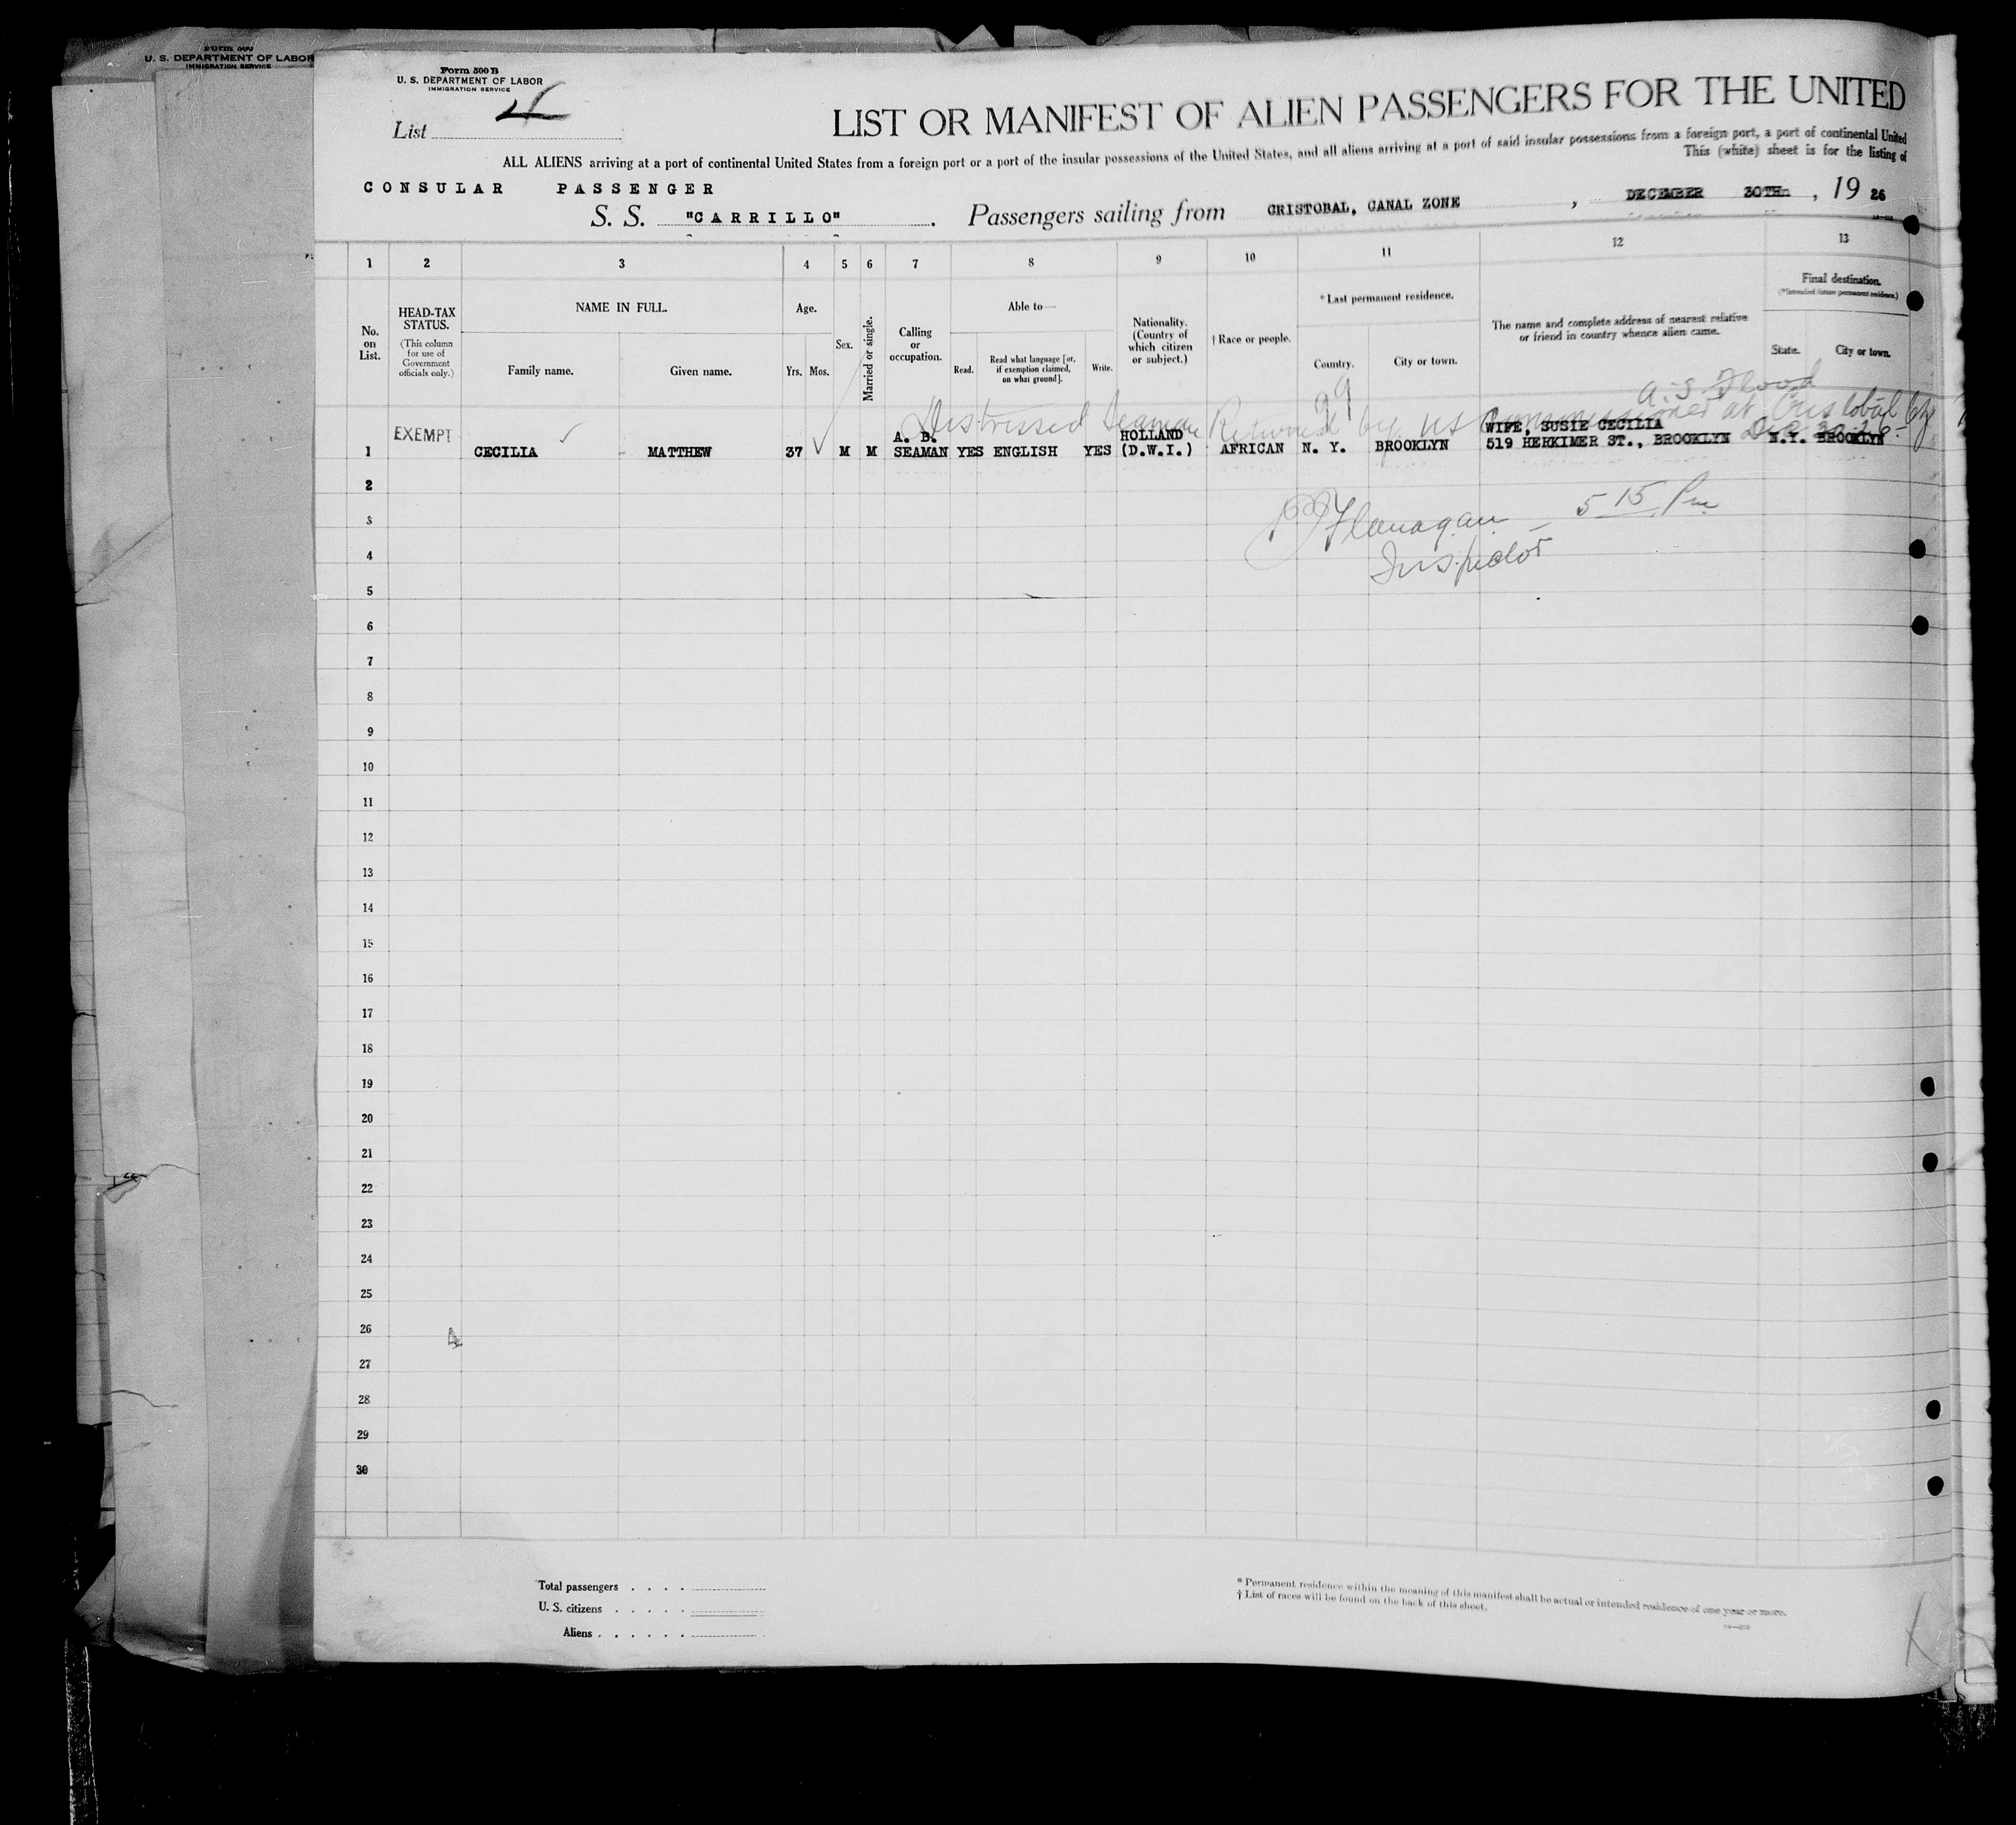 Form 500
U. S. DEPARTMENT OF LABOR
IMMIGRATION SERVICE
Form 500 B
U. S. DEPARTMENT OF LABOR
IMMIGRATION SERVICE
List 4
LIST OR MANIFEST OF ALIEN PASSENGERS FOR THE UNITED
ALL ALIENS arriving at a port of continental United States from a foreign port or a port of the insular possessions of the United States, and all aliens arriving at a port of said insular possessions from a foreign port, a port of continental United
This (white) sheet is for the listing of
CONSULAR PASSENGER
S. S. "CARRILLO". Passengers sailing from CRISTOBAL, CANAL ZONE, DECEMBER 30TH, 19 26
1 2 3 4 5 6 7 8 9 10 11 12 13
No. on List.
HEAD-TAX STATUS.
(This column for use of Government officials only.)
NAME IN FULL.
Family name. Given name.
Age.
Yrs. Mos.
Sex.
Married or single.
Calling or occupation.
Able to—
Read. Read what language [or, if exemption claimed, on what ground]. Write.
Nationality. (Country of which citizen or subject.)
† Race or people.
* Last permanent residence.
Country. City or town.
The name and complete address of nearest relative or friend in country whence alien came.
Final destination.
(*Intended future permanent residence.)
State. City or town.
99
A. S. Flood
Distressed Seaman Returned by US Commissioner at Cristobal
Dec 30-26
EXEMPT
A. B. HOLLAND WIFE, SUSIE CECILIA
1 CECILIA MATTHEW 37 M M SEAMAN YES ENGLISH YES (D.W.I.) AFRICAN N. Y. BROOKLYN 519 HERKIMER ST., BROOKLYN N.Y. BROOKLYN
2
3
Flanagan — 5 15 Pm
4
Inspector
5
6
7
8
9
10
11
12
13
14
15
16
17
18
19
20
21
22
23
24
25
26
4
27
28
29
30
Total passengers . . . .
U. S. citizens . . . . .
Aliens . . . . . .
* Permanent residence within the meaning of this manifest shall be actual or intended residence of one year or more.
† List of races will be found on the back of this sheet.